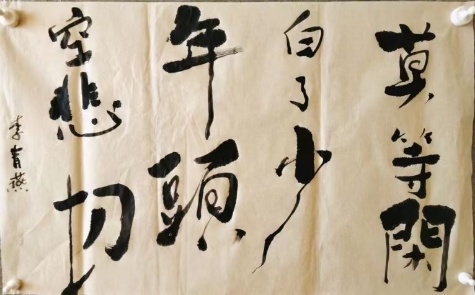 莫等閑
白了少
年頭
空悲切
李青燕